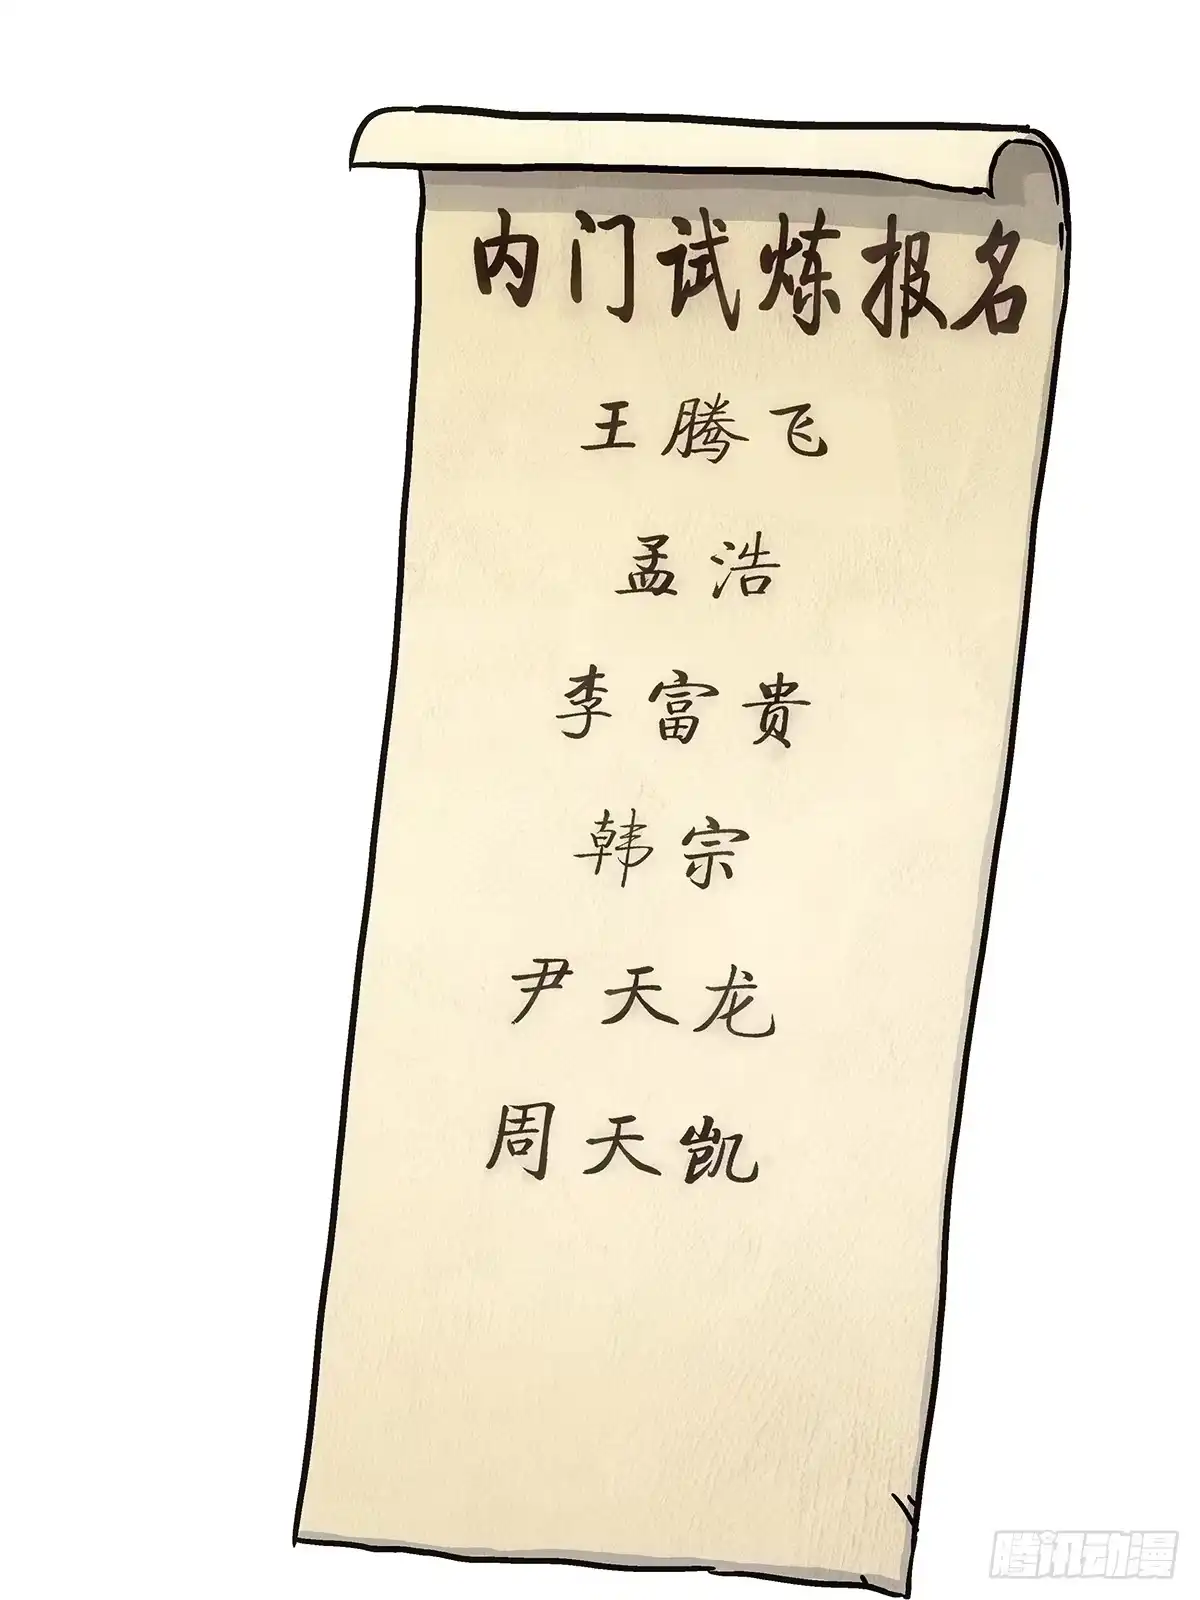 内门试炼报名
王腾飞
孟浩
李富贵
韩宗
尹天龙
周天凯
腾讯动漫